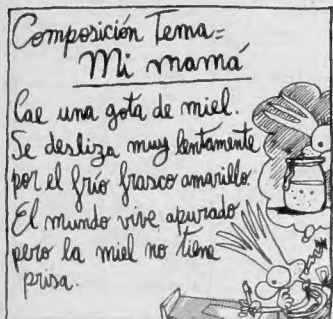 Composición Tema=
Mi mamá
Cae una gota de miel.
Se desliza muy lentamente
por el frío frasco amarillo.
El mundo vive apurado
pero la miel no tiene
prisa.